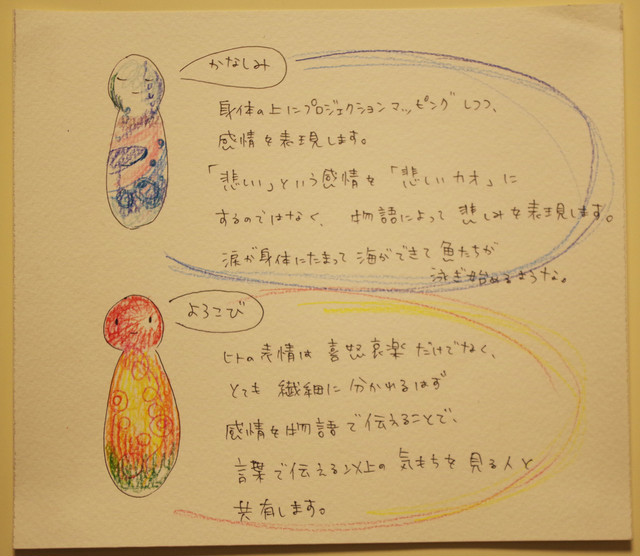 かなしみ
身体の上にプロジェクションマッピングしつつ、
感情を表現します。
「悲しい」という感情を「悲しいカオ」に
するのではなく、物語によって悲しみを表現します。
涙が身体にたまって海ができて魚たちが
泳ぎ始めるような。
よろこび
ヒトの表情は喜怒哀楽だけでなく、
とても繊細に分かれるはず
感情を物語で伝えることで、
言葉で伝える以上の気もちを見る人と
共有します。